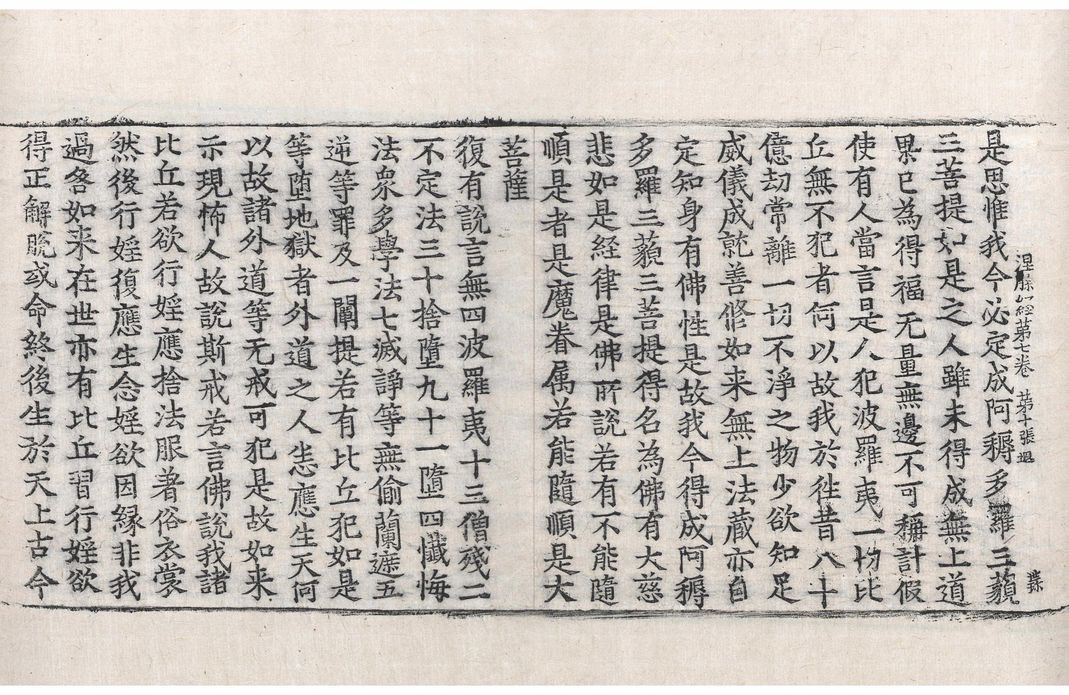 涅槃経第七卷 第十張 過
是思惟我今必定成阿耨多羅三藐
三菩提如是之人雖未得成無上道
果已為得福无量無邊不可稱計假
使有人當言是人犯波羅夷一切比
丘無不犯者何以故我於往昔八十
億劫常離一切不淨之物少欲知足
威儀成就善修如来無上法藏亦自
定知身有佛性是故我今得成阿耨
多羅三藐三菩提得名為佛有大慈
悲如是経律是佛所說若有不能隨
順是者是魔眷属若能隨順是大
菩薩
復有說言無四波羅夷十三僧殘二
不定法三十捨墮九十一墮四懺悔
法衆多學法七滅諍等無偷蘭遮五
逆等罪及一闡提若有比丘犯如是
等墮地獄者外道之人悉應生天何
以故諸外道等无戒可犯是故如来
示現怖人故說斯戒若言佛說我諸
比丘若欲行婬應捨法服著俗衣裳
然後行婬復應生念婬欲因緣非我
過咎如来在世亦有比丘習行婬欲
得正解脫或命終後生於天上古今